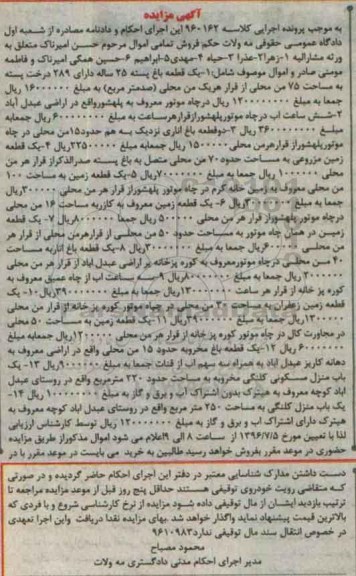 آگهی مزایده
به موجب پرونده اجرایی کلاسه ۹۶۰۱۶۲ این اجرای احکام و دادنامه مصادره از شعبه اول
دادگاه عمومی حقوقی مه ولات حکم فروش تمامی اموال مرحوم حسن امیرناک متعلق به
ورثه مشارالیه ۱-زهرا۲-عذرا ۳-حیاه ۴-مهدی۵-ابراهیم ۶-حسین همگی امیرناک و فاطمه
مومنی صادر و اموال موصوف شامل:۱-یک قطعه باغ پسته ۳۵ ساله دارای ۲۸۹ درخت پسته
به مساحت ۷۵ من محلی از قرار هریک من محلی (صدمتر مربع) به مبلغ ۱۶۰۰۰۰۰۰ ریال
جمعا به مبلغ ۱۲۰۰۰۰۰۰۰۰ ریال درچاه موتور معروف به پلهشورواقع در اراضی عبدل آباد
۲-شش ساعت اب درچاه موتورپلهشورازقرارهرساعت به مبلغ ۶۰۰۰۰۰۰۰ ریال جمعابه
مبلغ ۳۶۰۰۰۰۰۰۰ ریال ۳-دوقطعه باغ اناری نزدیک به هم حدود۱۵من محلی در چاه
موتورپلهشوراز قرارهرمن محلی ۱۵۰۰۰۰۰ ریال جمعابه مبلغ ۲۲۵۰۰۰۰۰ریال ۴-یک قطعه
زمین مزروعی به مساحت حدود ۷۰ من محلی متصل به باغ پسته صدرالذکراز قرار هر من
محلی ۱۰۰۰۰۰۰ ریال جمعا به مبلغ ۷۰۰۰۰۰۰۰ریال ۵-یک قطعه زمین به مساحت ۱۰۰
من محلی معروف به زمین خانه گرم در چاه موتور پلهشوراز قرار هر من محلی
جمعا به مبلغ ریال ۶- یک قطعه زمین معروف به کازربه مساحت ۱۶ من محلی
درچاه موتور پلهشوراز قرار هر من محلی ۵۰۰۰۰۰ ریال جمعا ۸۰۰۰۰۰۰ریال ۷- یک قطعه
زمین در همان چاه موتور به مساحت حدود ۵۰ من محلی از قرارهرمن محلی از قرار هر
من محلی ریال جمعا به مبلغ ریال ۸-یک قطعه باغ اناربه مساحت
۴۰ من محلی در چاه موتورمعروف به کوره پزخانه در اراضی عبدل اباد از قرار هر من محلی
۲۰۰۰۰۰۰ ریال جمعا به مبلغ ۸۰۰۰۰۰۰۰ریال ۹- ساعت اب از چاه عمیق معروف به
کوره پز خانه از قرار هر ساعت ۱۳۰۰۰۰۰۰۰ریال جمعا به مبلغ ریال ۱۰-یک
قطعه زمین زعفران به مساحت ۳۰ من محلی در چاه موتور کوره پز خانه از قرار من محلی
۱۳۰۰۰۰۰ریال جمعا به مبلغ ۳۹۰۰۰۰۰۰ ریال ۱۱-یک قطعه زمین به مساحت ۵۰ محلی
در مجاورت کال در چاه موتور کوره پز خانه از قرار هر من محلی ۱۲۰۰۰۰۰ریال جمعابه مبلغ
۶۰۰۰۰۰۰۰ ریال ۱۲-یک قطعه باغ مخروبه حدود ۱۵ من محلی واقع در اراضی معروف به
دهانه کاریز عبدل اباد به همراه سه سهم اب از قنات جمعا به مبلغ ریال ۱۳- یک
باب منزل مسکونی کلنگی مخروبه به مساحت حدود ۲۲۰ مترمربع واقع در روستای عبدل
اباد کوچه معروف به هیترک بدون اشتراک آب و برق و گاز به مبلغ ریال ۱۴-
یک باب منزل کلنگی به مساحت ۲۵۰ متر مربع واقع در روستای عبدل اباد کوچه معروف به
هیترک دارای اشتراک اب و برق و گاز به مبلغ ۱۲۰۰۰۰۰۰۰ریال توسط کارشناس ارزیابی
لذا با تعیین مورخ ۱۳۹۶/۷/۵ از ساعت ۸ الی ۹اعلام می شود اموال مذکوراز طریق مزایده
حضوری در موعد مقرر بفروش خواهد رسید طالبین به خرید- می بایست در موعد مقرر با در
دست داشتن مدارک شناسایی معتبر در دفتر این اجرای احکام حاضر گردیده و در صورتی
که متقاضی رویت خودروی توقیفی هستند حداقل پنج روز قبل از موعد مزایده مراجعه تا
ترتیب بازدید ایشان از مال توقیفی داده شود مزایده از نرخ کارشناسی شروع و با فردی که
بالاترین قیمت پیشنهاد نماید واگذار خواهد شد .بهای مزایده نقدا دریافت واین اجرا تعهدی
در خصوص انتقال سند مال توقیفی ندارد۹۶۱۰۹۸۳
محمود مصباح
مدیر اجرای احکام مدنی دادگستری مه ولات